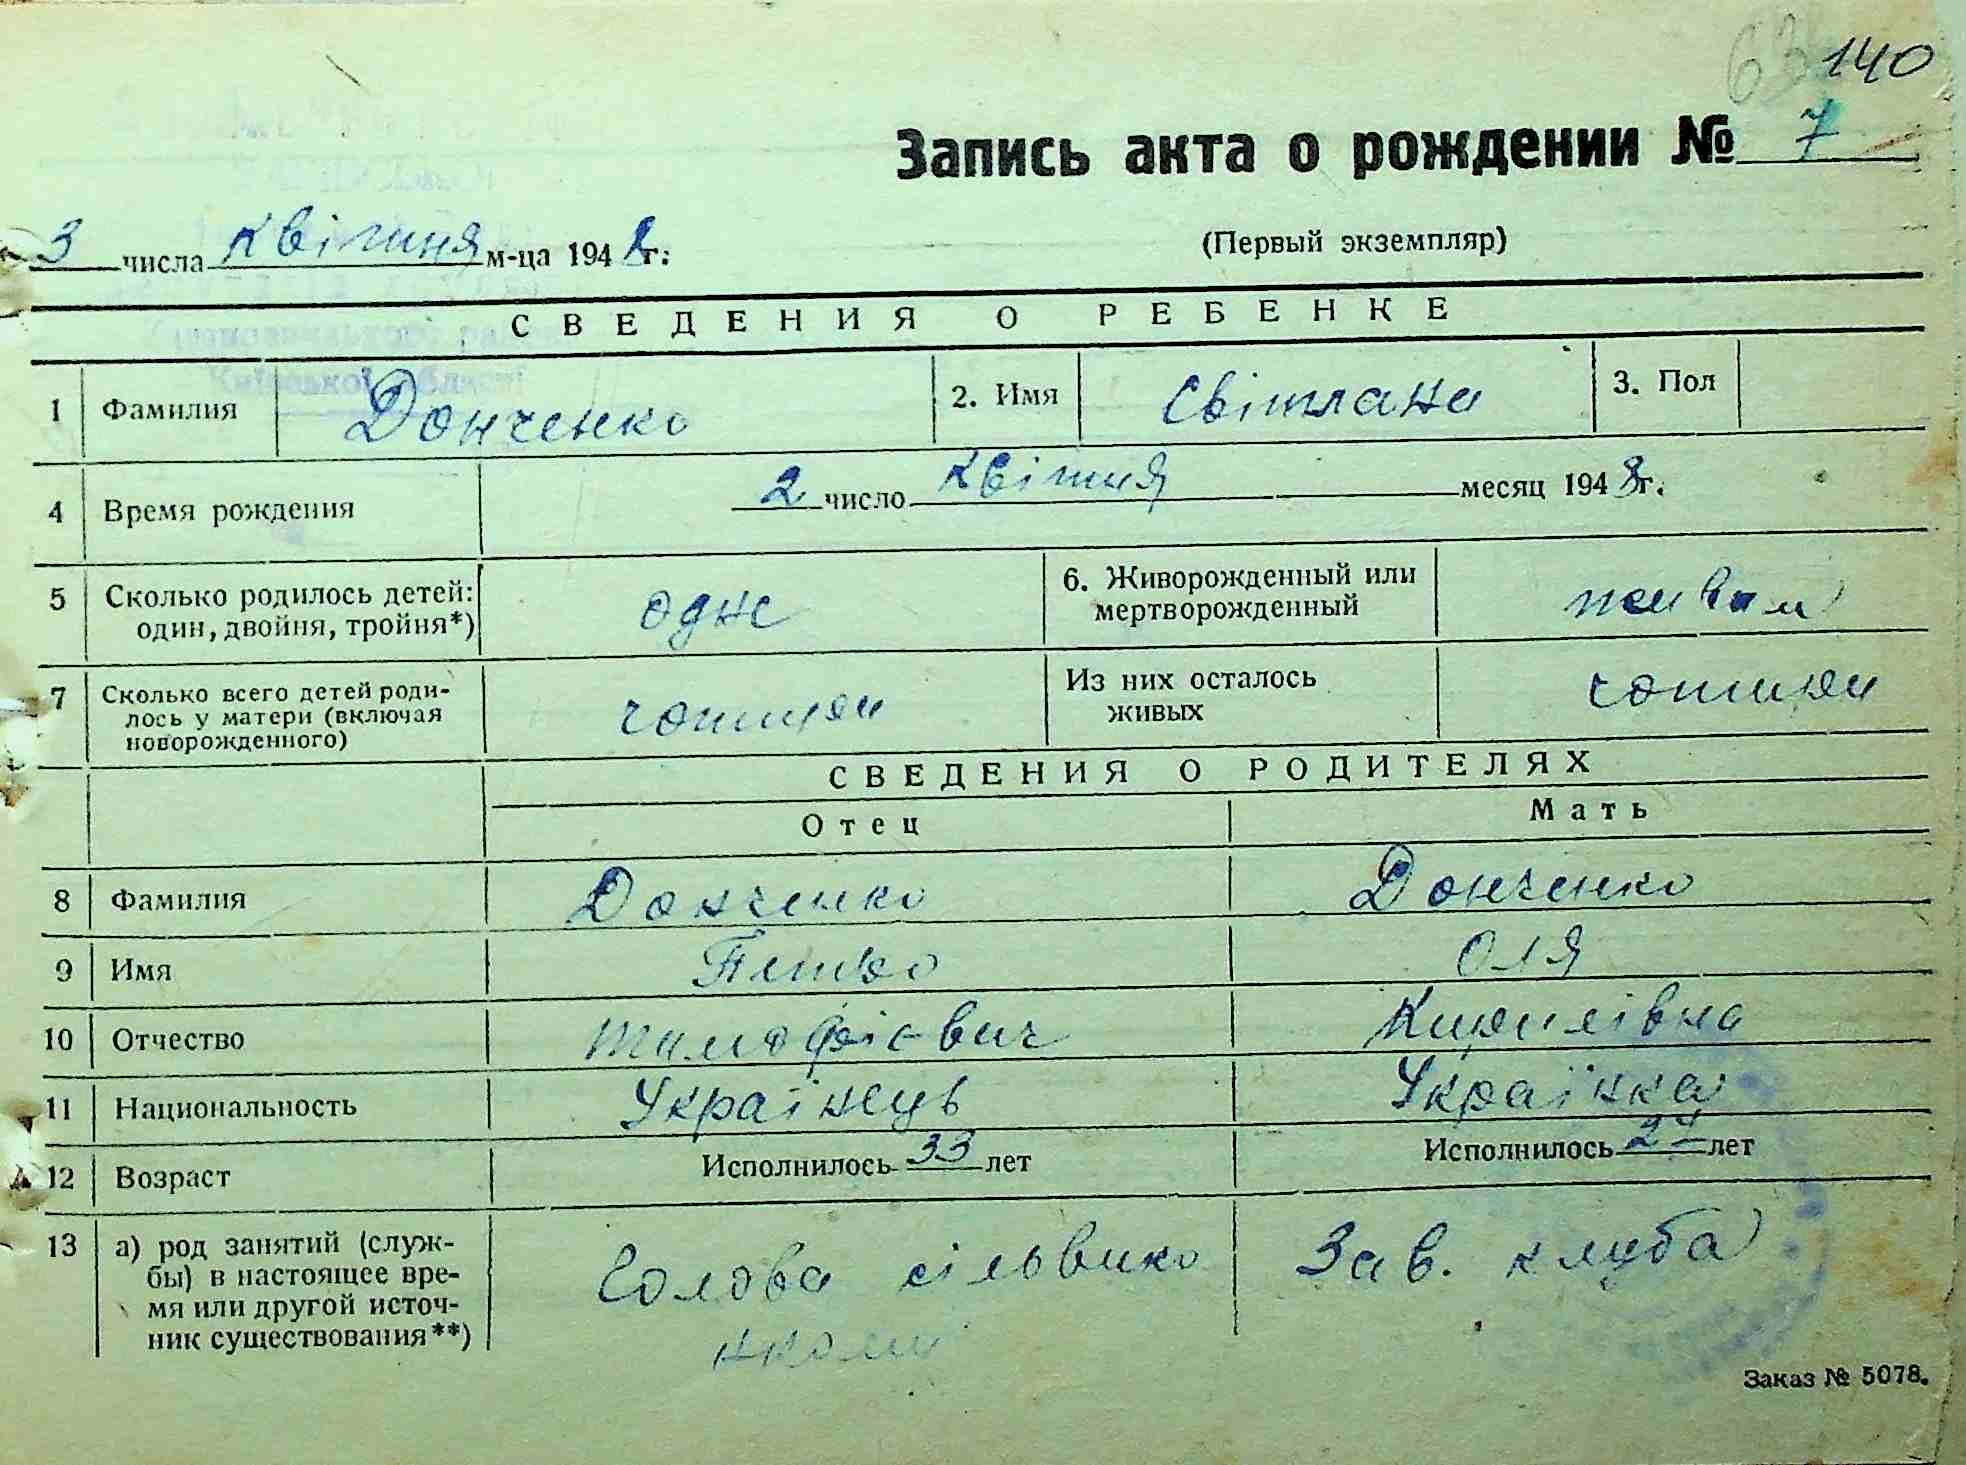 140
Запись акта о рождении № 7
3 числа квітня м-ца 1948 г.
(Первый экземпляр)
СВЕДЕНИЯ О РЕБЕНКЕ
1 Фамилия Донченко 2. Имя Світлана 3. Пол
4 Время рождения 2 число квітня месяц 1948 г.
5 Сколько родилось детей: один, двойня, тройня*) одне 6. Живорожденный или мертворожденный
7 Сколько всего детей родилось у матери (включая новорожденного) Из них осталось живых
СВЕДЕНИЯ О РОДИТЕЛЯХ
Отец Мать
8 Фамилия Донченко Донченко
9 Имя Петро Оля
10 Отчество Тимофієвич Кирилівна
11 Национальность Українець Українка
12 Возраст Исполнилось 33 лет Исполнилось лет
13 а) род занятий (служ-
бы) в настоящее вре-
мя или другой источ-
ник существования**)
Голова сільвико
нкому
Зав. клуба
Заказ № 5078.